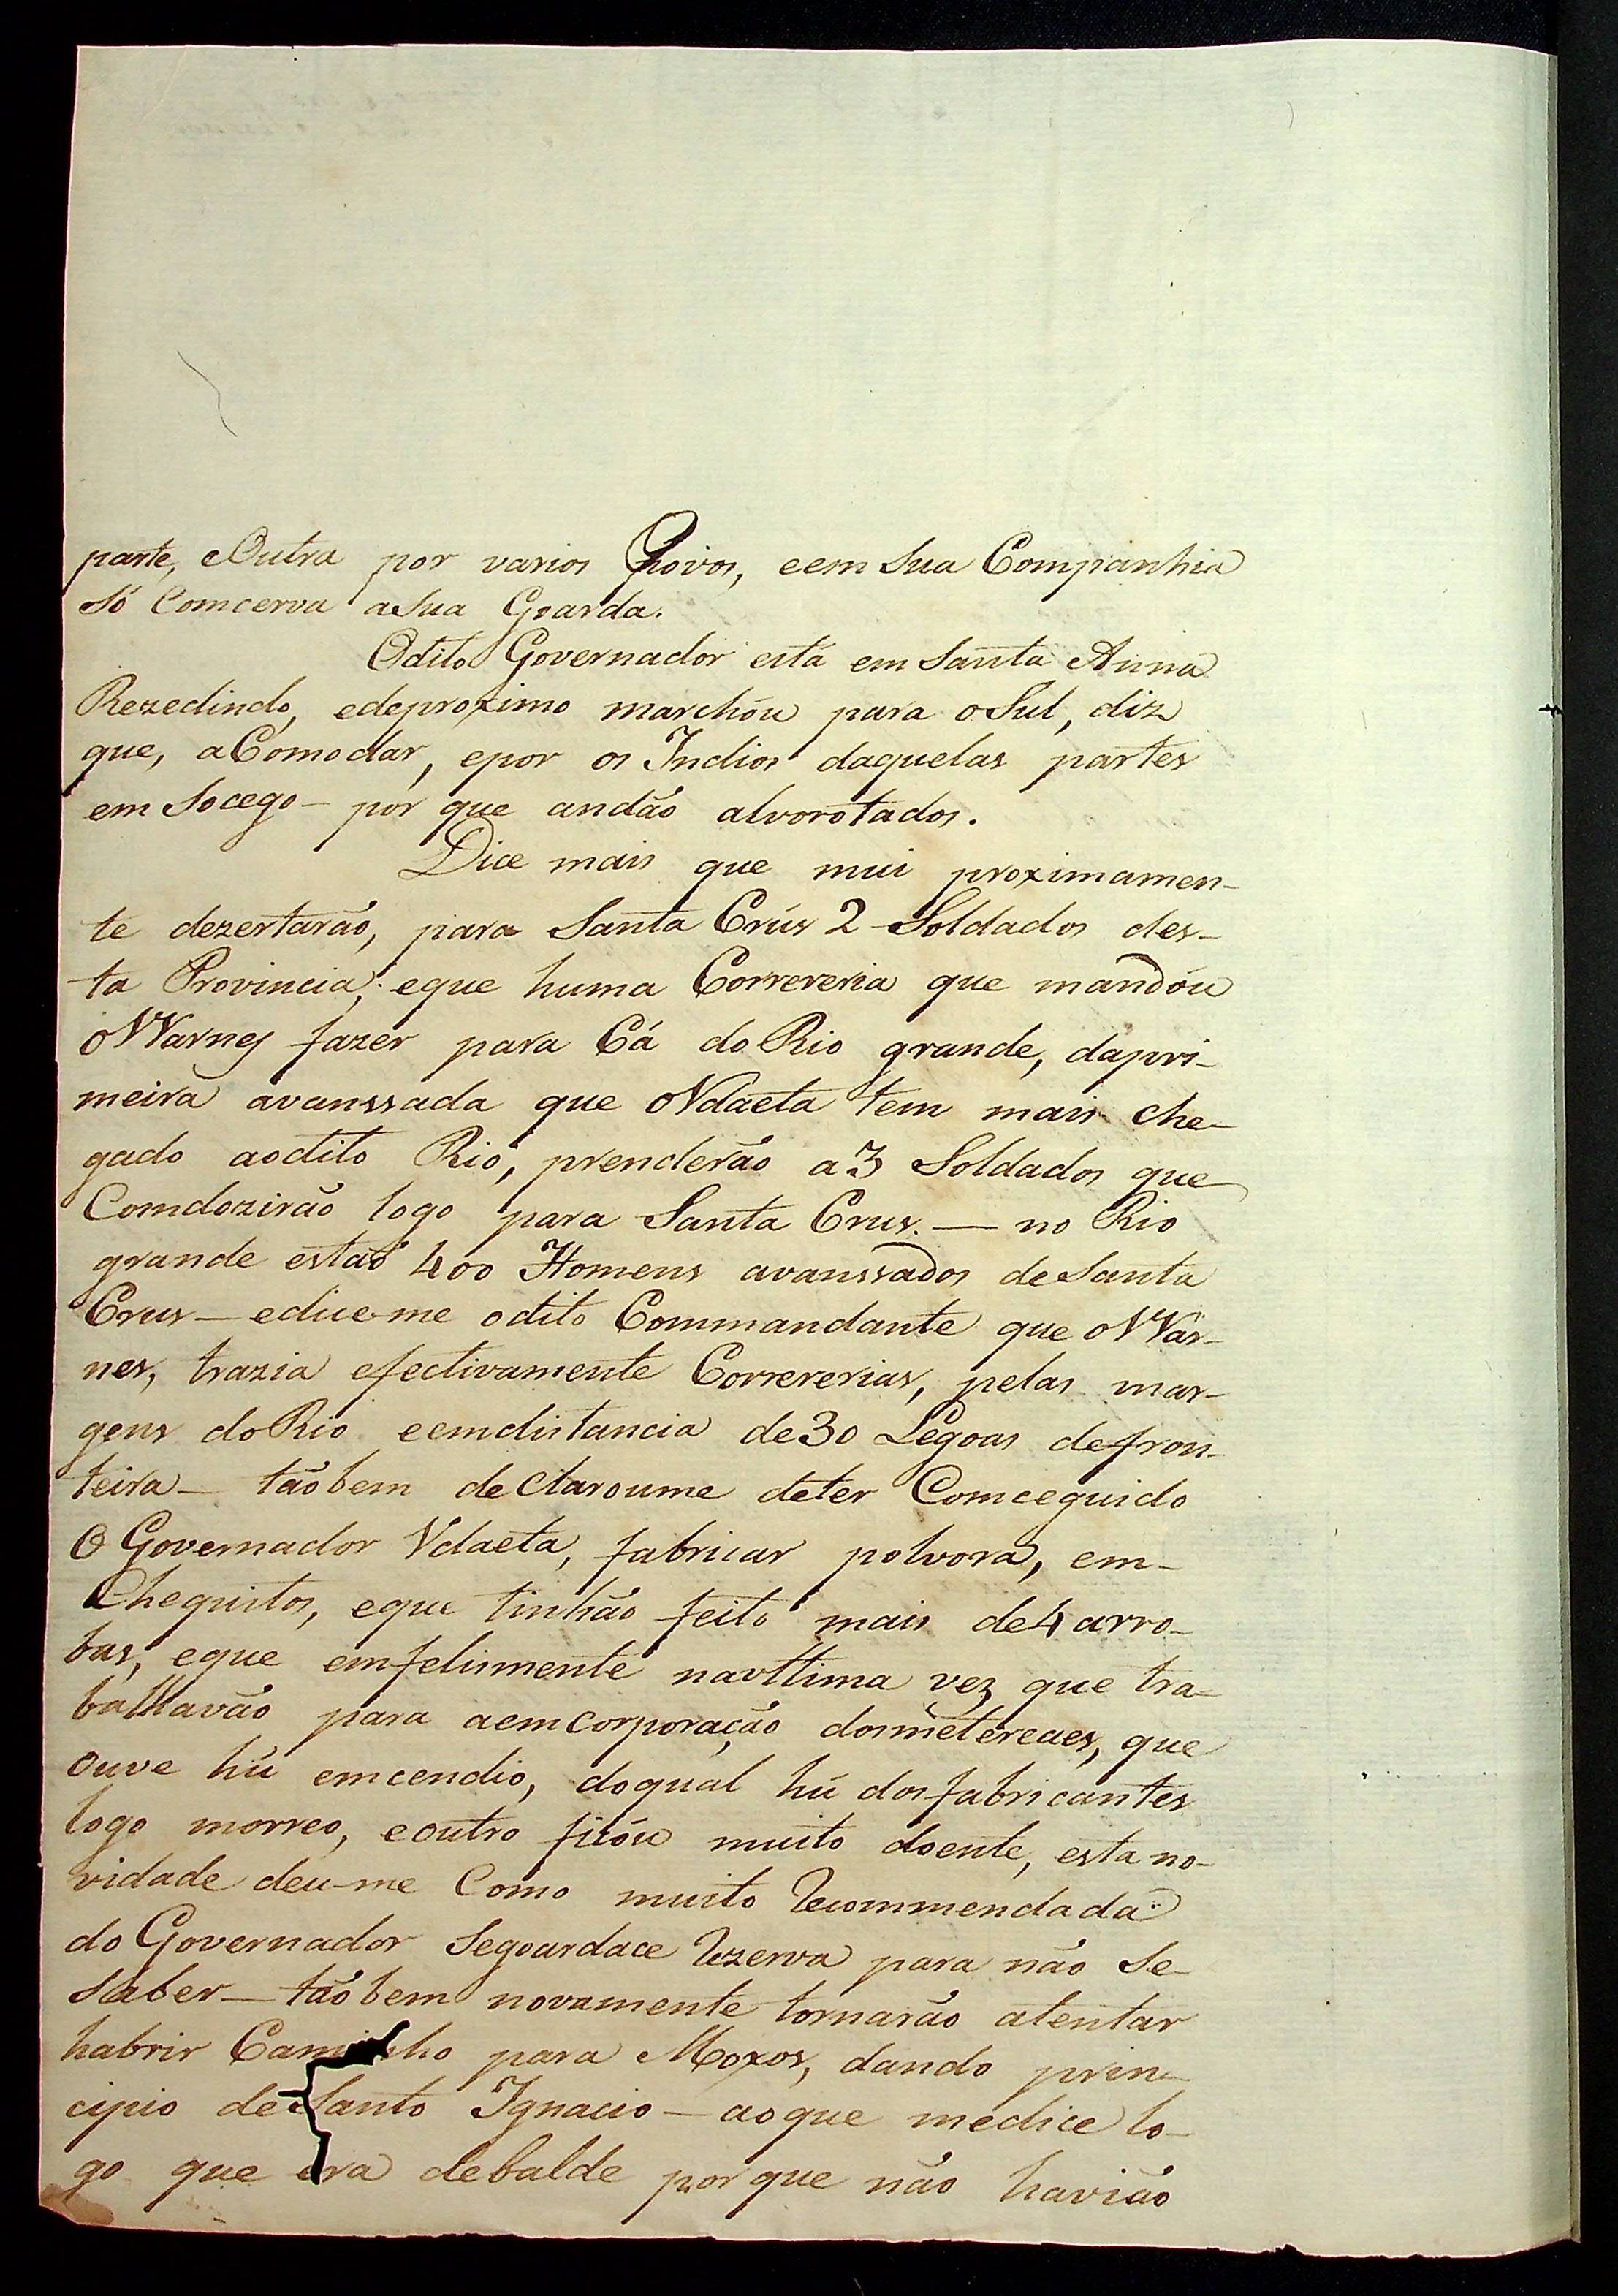 parte, eOutra por varios Povos, eem Sua Companhia
Só Comcerva aSua Goarda.
Odito Governador está em Santa Anna
Rezedindo, edeproximo marchóu para oSul, diz
que, aComodar, epor os Indios daquelas partes
em Socego - por que andão alvorotados.
Dice mais que mui proximamen-
te dezertarão, para Santa Crús 2 Soldados des-
ta Provincia; eque huma Correreria que mandóu
oWarnes fazer para Cá do Rio grande, dapri-
meira avanssada que oVdaeta tem mais che-
gado aodito Rio, prenderão a3 Soldados que
Comdozirão logo para Santa Crus. — no Rio
grande estão 400 Homens avanssados de Santa
Crus — edice-me odito Commandante que oWar-
nes, trazia efectivamente Correrias, pelas mar-
gens doRio eemdistancia de30 Legoas defron-
teira — tãobem deClaroume deter Comceguido
O Governador Vdaeta, fabricar polvora, em-
Chequitos, eque tinhão feito mais de4 arro-
bas, eque emfelismente navltima vez que tra-
balhavão para aemcorporação dosmetereaes, que
ouve hú emcendio, doqual hú dosfabricantes
logo morreo, eoutro ficóu muito doente, esta no-
vidade deu-me Como muito recommendada
do Governador Segoardace rezerva para não Se-
Saber — tãobem novamente tornarão atentar
habrir Caminho para Moxos, dando prin-
cipio de Santo Ignacio — aoque medice lo-
go que era debalde porque não havião